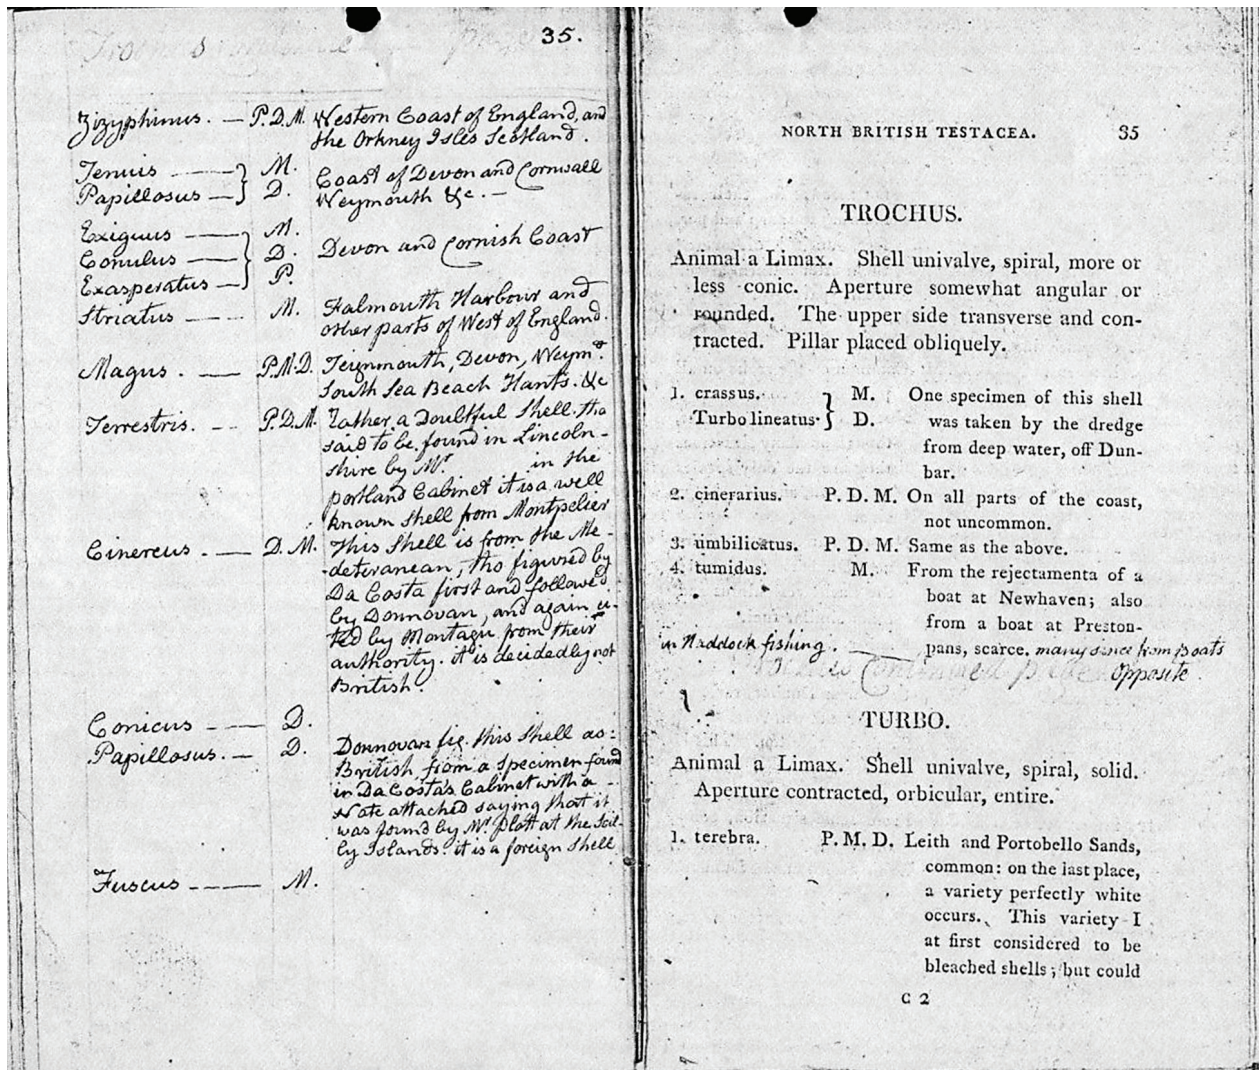 35.
Zizyphinus. — P.D.M. Western Coast of England, and
the Orkney Isles Scotland.
Tenuis ——— } M. Coast of Devon and Cornwall
Papillosus — } D. Weymouth &c. —
Exiguus ——— } M.
Conulus ——— } D. Devon and Cornish Coast
Exasperatus — } P.
Striatus ---- M. Falmouth Harbour and
other parts of West of England.
Magus. — P.M.D. Teignmouth, Devon, Weymth.
South Sea Beach Hants. &c
Terrestris. -- P.D.M. Rather a Doubtful Shell. tho
said to be found in Lincoln-
shire by Mr in the
portland Cabinet it is a well
known shell from Montpelier
Cinereus. — D.M. This Shell is from the Me-
deteranean, tho figured by
Da Costa first and followed
by Donnovan, and again ci-
ted by Montagu from their
authority. it is decidedly not
British.
Conicus --— D.
Papillosus. — D. Donnovan fig. this shell as
British from a specimen found
in Da Costa's Cabinet with a
Note attached saying that it
was found by Mr. Platt at the Scil-
ly Islands. it is a foreign shell
Fuscus ---— M.
NORTH BRITISH TESTACEA. 35
TROCHUS.
Animal a Limax. Shell univalve, spiral, more or
less conic. Aperture somewhat angular or
rounded. The upper side transverse and con-
tracted. Pillar placed obliquely.
1. crassus. } M. One specimen of this shell
Turbo lineatus } D. was taken by the dredge
from deep water, off Dun-
bar.
2. cinerarius. P. D. M. On all parts of the coast,
not uncommon.
3. umbilicatus. P. D. M. Same as the above.
4. tumidus. M. From the rejectamenta of a
boat at Newhaven; also
from a boat at Preston-
pans, scarce. many since from Boats
in Haddock fishing.
Continued opposite
TURBO.
Animal a Limax. Shell univalve, spiral, solid.
Aperture contracted, orbicular, entire.
1. terebra. P. M. D. Leith and Portobello Sands,
common: on the last place,
a variety perfectly white
occurs. This variety I
at first considered to be
bleached shells; but could
C 2